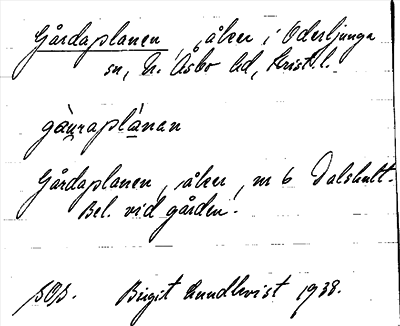 Gårdaplanen, åker i Oderljunga
sn, N. Åsbo hd, Krist. l.
gàu̲raplá̲nan
Gårdaplanen, åker, nr 6 Dalshult.
Bel. vid gården.
Birgit Lundkvist 1938.